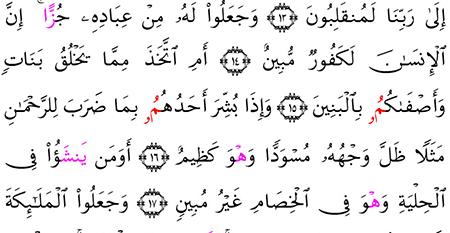 إِلَىٰ رَبِّنَا لَمُنقَلِبُونَ ١٣ وَجَعَلُوا۟ لَهُۥ مِنْ عِبَادِهِۦ جُزًّا ۚ إِنَّ
ٱلْإِنسَٰنَ لَكَفُورٌ مُّبِينٌ ١٤ أَمِ ٱتَّخَذَ مِمَّا يَخْلُقُ بَنَاتٍ
وَأَصْفَىٰكُمُۥ بِٱلْبَنِينَ ١٥ وَإِذَا بُشِّرَ أَحَدُهُمُۥ بِمَا ضَرَبَ لِلرَّحْمَٰنِ
مَثَلًا ظَلَّ وَجْهُهُۥ مُسْوَدًّا وَهْوَ كَظِيمٌ ١٦ أَوَمَن يَنشَؤُا۟ فِى
ٱلْحِلْيَةِ وَهْوَ فِى ٱلْخِصَامِ غَيْرُ مُبِينٍ ١٧ وَجَعَلُوا۟ ٱلْمَلَٰٓئِكَةَ